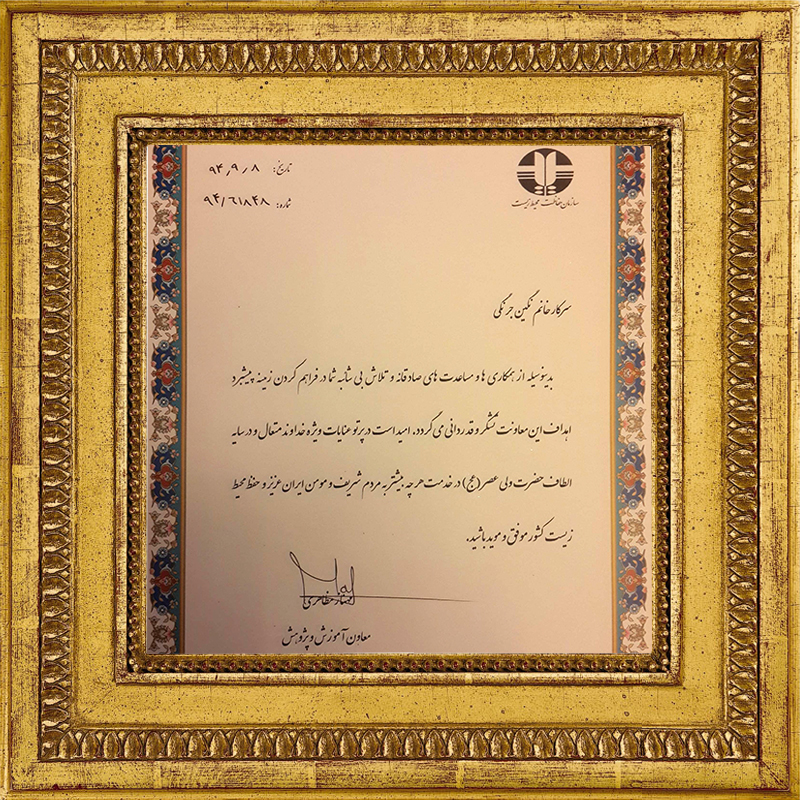 سازمان حفاظت محیط زیست
تاریخ: ۹۴٫۹٫۸
شماره: ۹۴/۶۱۸۴۸
سرکار خانم نگین جرنگی
بدینوسیله از همکاری ها و مساعدت های صادقانه و تلاش بی شائبه شما در فراهم کردن زمینه پیشبرد
اهداف این معاونت تشکر و قدردانی می گردد. امید است در پرتو عنایات ویژه خداوند متعال و در سایه
الطاف حضرت ولی عصر (عج) در خدمت هر چه بیشتر به مردم شریف و مومن ایران عزیز و حفظ محیط
زیست کشور موفق و موید باشید.
مهناز مظاهری
معاون آموزش و پژوهش